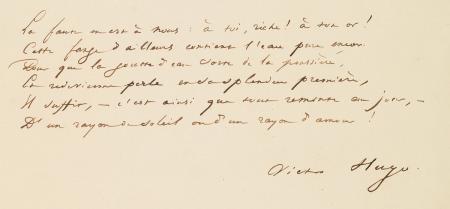 La faute en est à nous ; à toi, riche ! à ton or !
Cette fange d'ailleurs contient l'eau pure encor.
Pour que la goutte d'eau sorte de la poussière,
Et redevienne perle en sa splendeur première,
Il suffit, – c'est ainsi que tout remonte au jour, –
D'un rayon de soleil ou d'un rayon d'amour !
Victor Hugo.